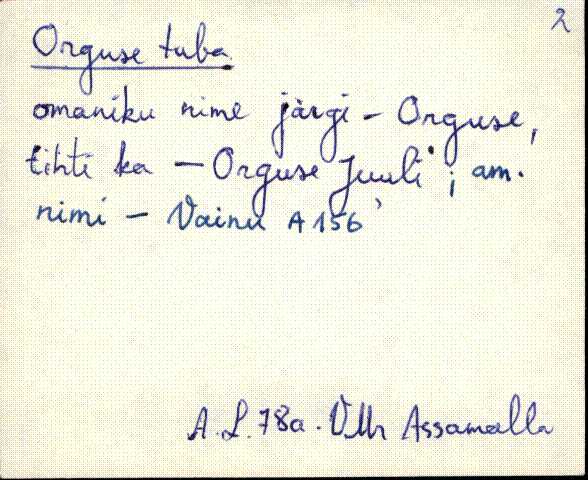 2
Orguse tuba
omaniku nime järgi – Orguse,
tihti ka – Orguse Juuli; am.
nimi – Vainu A 156
A. L. 78a. VMr Assamalla